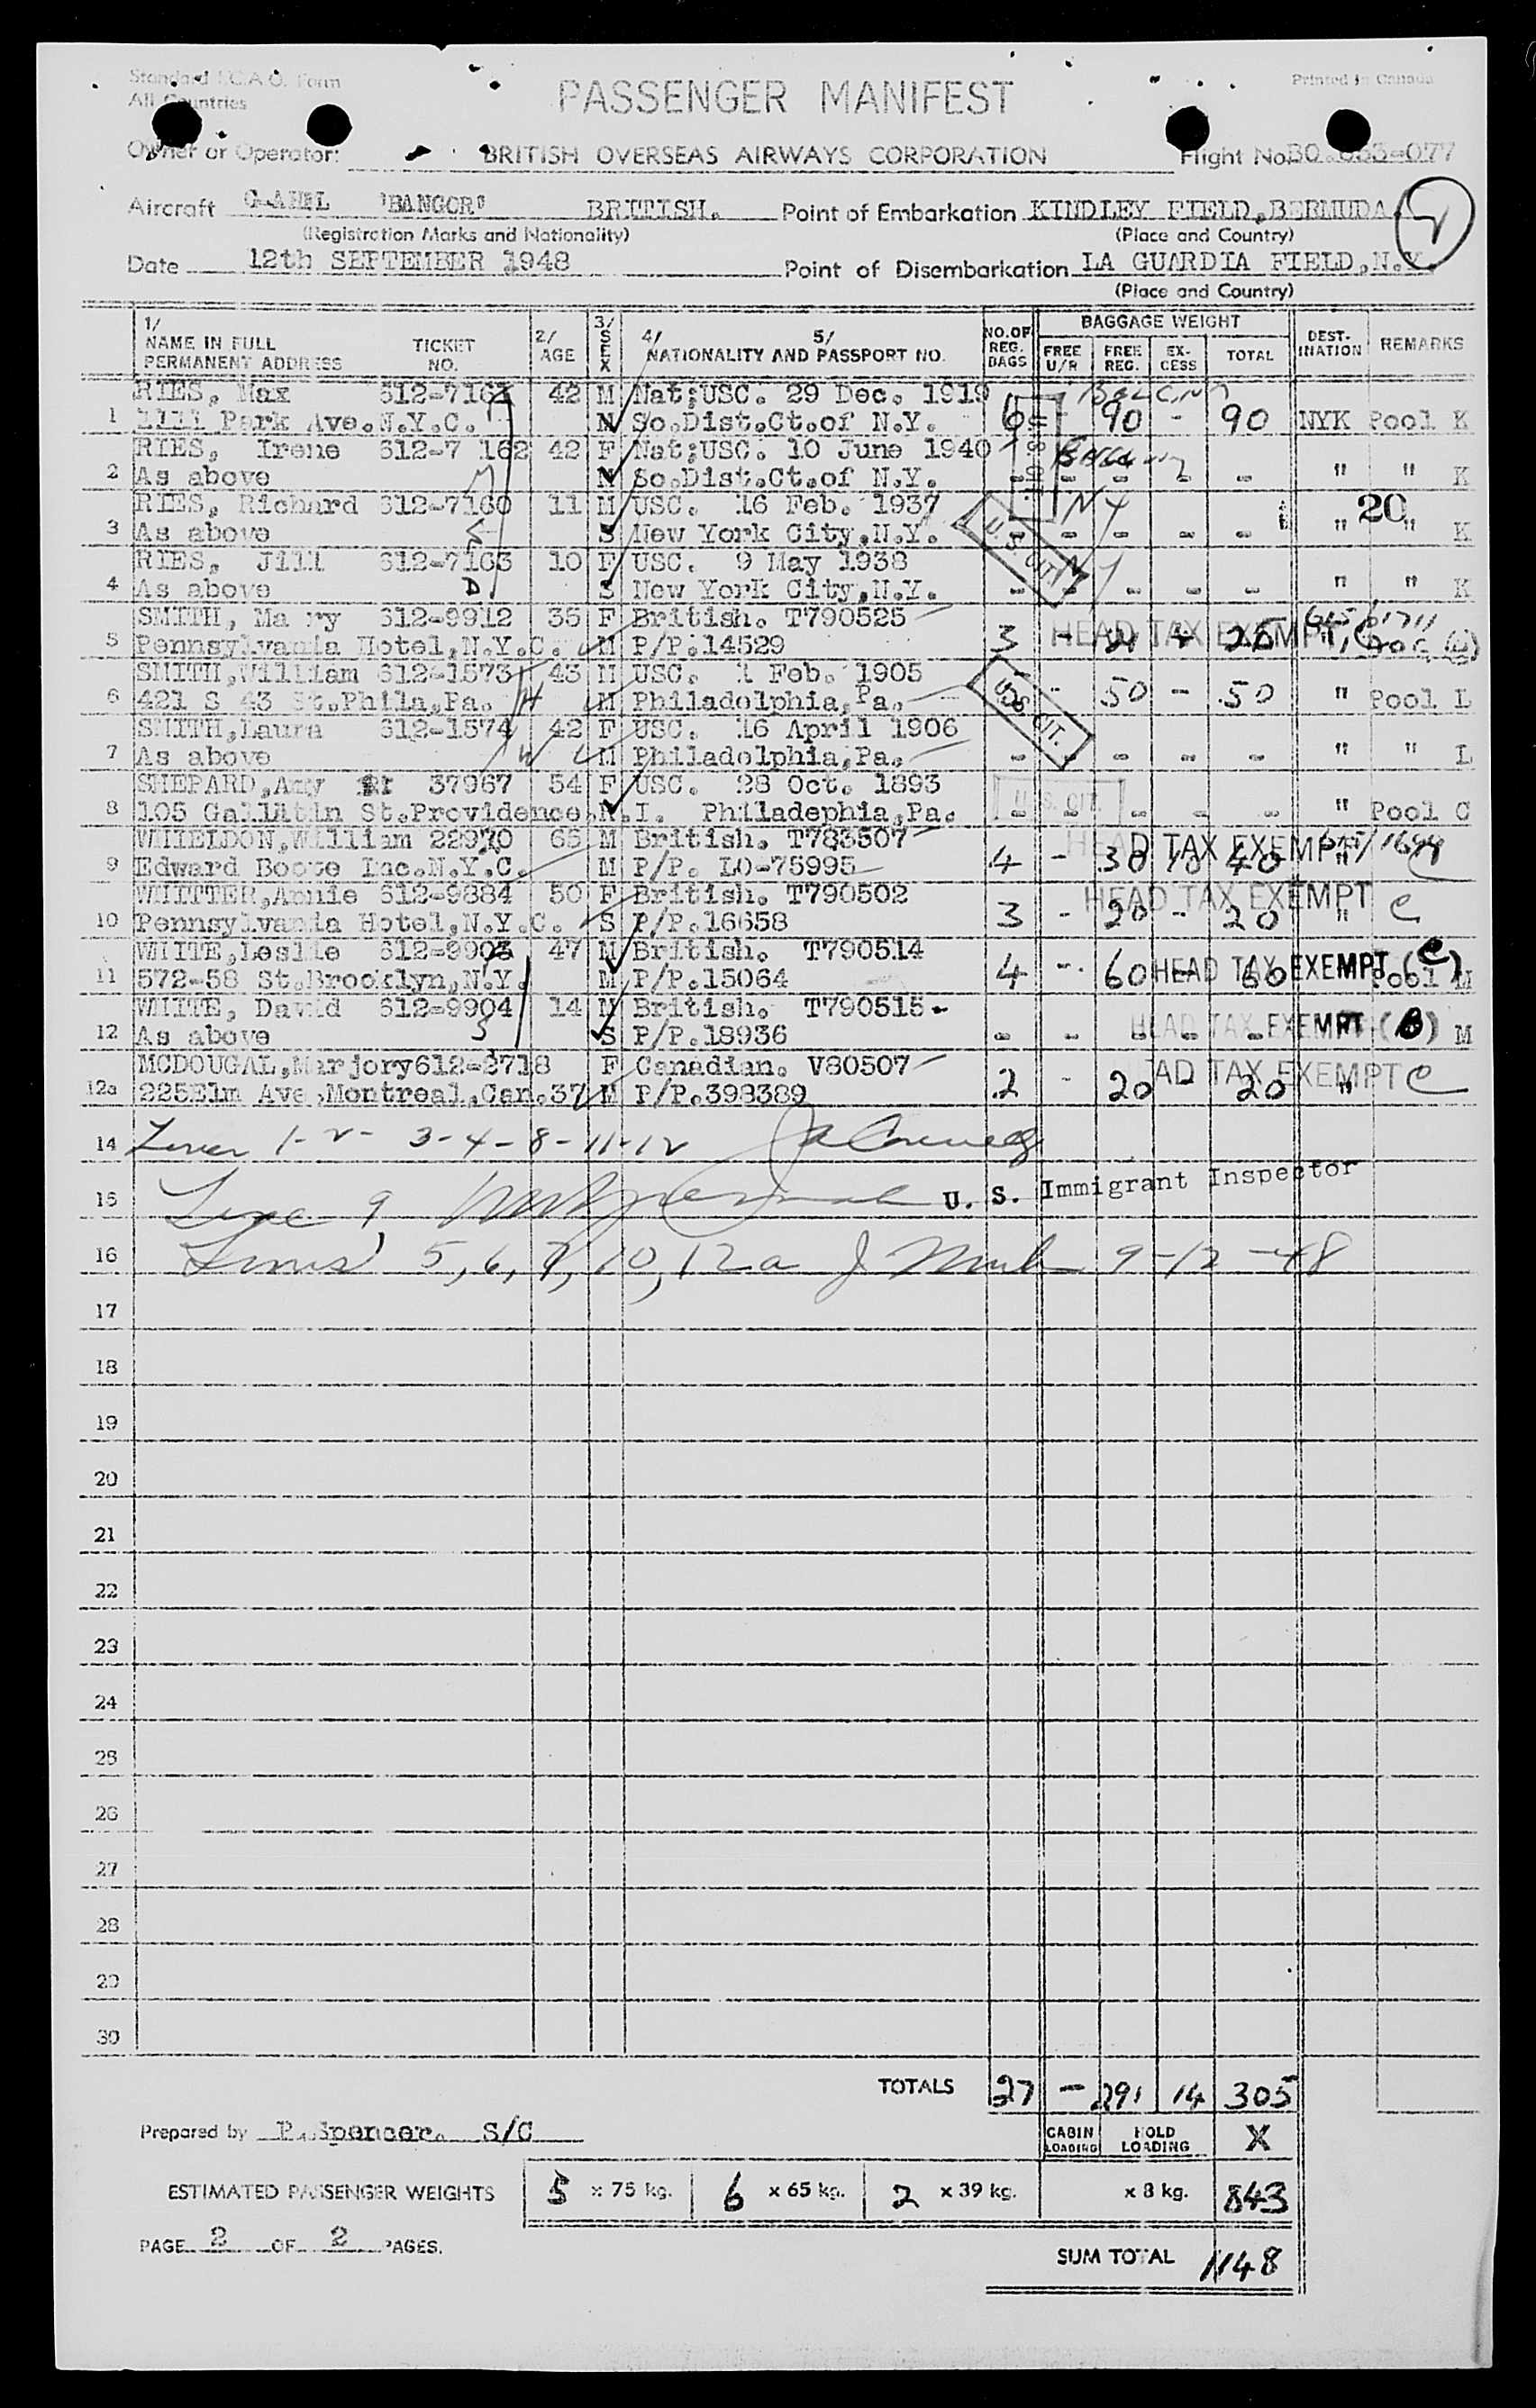 Standard I.C.A.O. Form
All Countries
Printed in Canada
PASSENGER MANIFEST
Owner or Operator: BRITISH OVERSEAS AIRWAYS CORPORATION Flight No. -077
Aircraft G-AHEL "BANGOR" BRITISH. Point of Embarkation KINDLEY FIELD, BERMUDA.
(Registration Marks and Nationality) (Place and Country)
Date 12th SEPTEMBER 1948 Point of Disembarkation LA GUARDIA FIELD, N.Y.
(Place and Country)
1/ NAME IN FULL PERMANENT ADDRESS TICKET NO. 2/ AGE 3/ SEX 4/ 5/ NATIONALITY AND PASSPORT NO. NO. OF REG. BAGS BAGGAGE WEIGHT FREE U/R FREE REG. EX-CESS TOTAL DEST-INATION REMARKS
RIES, Max 612-7161 42 M Nat;USC. 29 Dec. 1919
1 1111 Park Ave.N.Y.C. M So.Dist.Ct.of N.Y. 6 - 90 - 90 NYK Pool K
RIES, Irene 612-7 162 42 F Nat;USC. 10 June 1940
2 As above M So.Dist.Ct.of N.Y. - - - - - " " K
RIES, Richard 612-7160 11 M USC. 16 Feb. 1937 NY 20
3 As above S New York City,N.Y. - - - - - " " K
U.S. CIT.
RIES, Jill 612-7163 10 F USC. 9 May 1938 NY
4 As above D S New York City,N.Y. - - - - - " " K
SMITH, Ma ry 612-9912 35 F British. T790525
5 Pennsylvania Hotel,N.Y.C. M P/P.14529 3 - 21 4 25 "
HEAD TAX EXEMPT
SMITH,William 612-1573 43 M USC. 1 Feb. 1905
6 421 S 43 St.Phila,Pa. H M Philadelphia,Pa. - 50 - 50 " Pool L
U.S. CIT.
SMITH,Laura 612-1574 42 F USC. 16 April 1906
7 As above W M Philadelphia,Pa. - - - - " " L
SHEPARD,Amy 37967 54 F USC. 28 Oct. 1893
8 105 Gallatin St.Providence,R.I. Philadephia,Pa. - - - - - " Pool C
U.S. CIT.
WHIELDON,William 22970 65 M British. T783507
9 Edward Boote Inc.N.Y.C. M P/P. LO-75995 4 - 30 10 40 "
HEAD TAX EXEMPT
WHITTER,Annie 612-9884 50 F British. T790502
HEAD TAX EXEMPT
10 Pennsylvania Hotel,N.Y.C. S P/P.16658 3 - 20 - 20 " C
WHITE,Leslie 612-9903 47 M British. T790514
11 572-58 St.Brooklyn,N.Y. M P/P.15064 4 - 60 - 60 Pool M
HEAD TAX EXEMPT (C)
WHITE, David 612-9904 14 M British. T790515
12 As above S S P/P.18936 - - - - - M
HEAD TAX EXEMPT (B)
MCDOUGAL,Marjory612-2718 F Canadian. V80507
HEAD TAX EXEMPT C
12a 225Elm Ave,Montreal,Can.37 M P/P.398389 2 - 20 - 20 "
14 Lines 1-2- 3-4-8-11-12
U. S. Immigrant Inspector
15 Line 9
16 Lines 5,6,7,10,12a 9-12-48
17
18
19
20
21
22
23
24
25
26
27
28
29
30
TOTALS 27 - 291 14 305
Prepared by P.Spencer. S/C
CABIN LOADING HOLD LOADING X
ESTIMATED PASSENGER WEIGHTS 5 x 75 kg. 6 x 65 kg. 2 x 39 kg. x 8 kg. 843
PAGE 2 OF 2 PAGES.
SUM TOTAL 1148